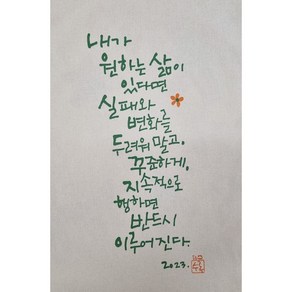 내가
원하는 삶이
있다면
실패와
변화를
두려워 말고,
꾸준하게,
지속적으로
행하면
반드시
이루어진다.
2023.